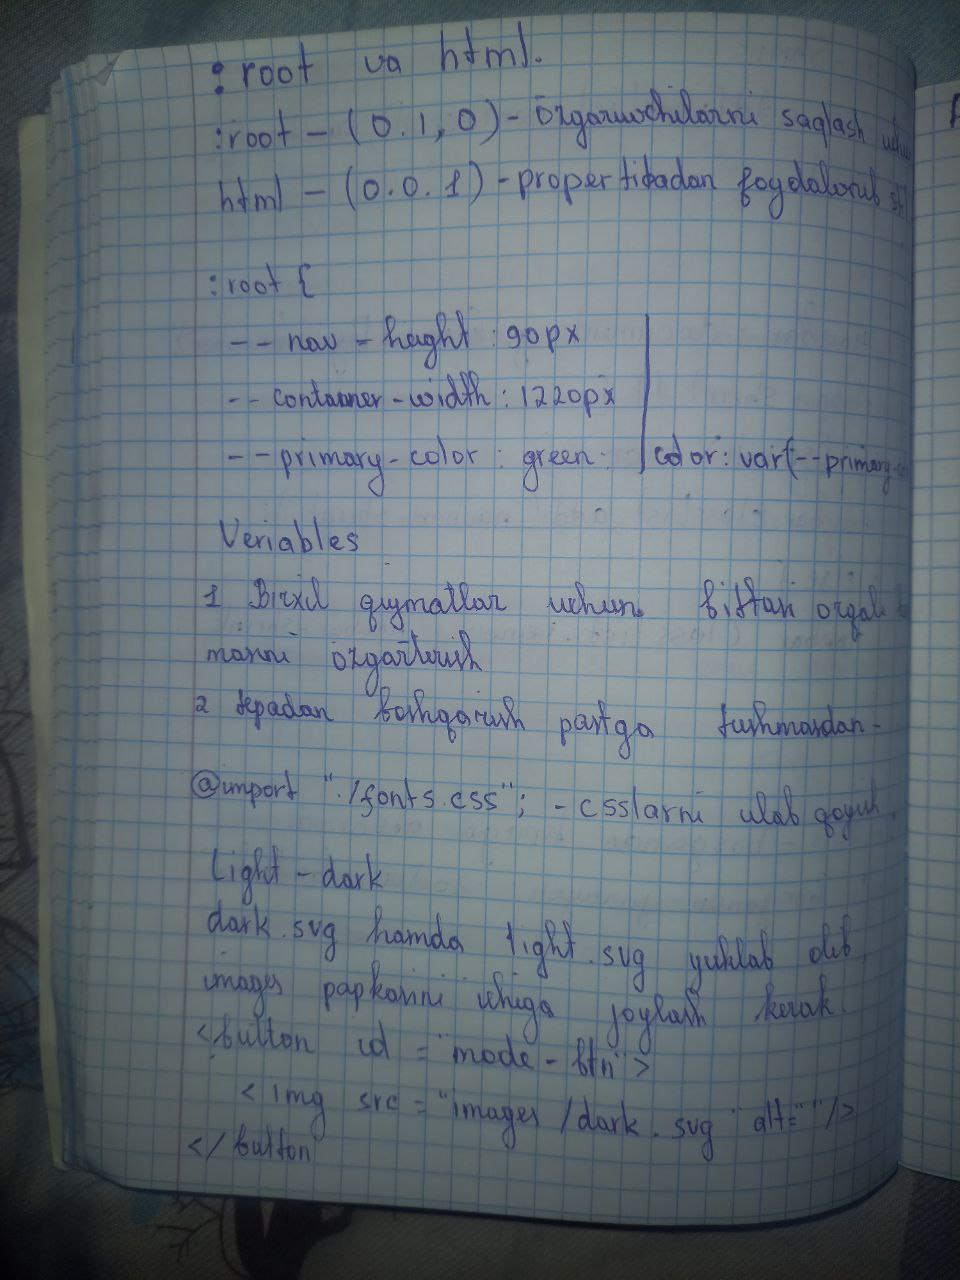 :root va html.
:root - (0.1,0) - özgaruvchilarni saqlash uchun
html - (0.0.1) - propertitadan foydalanib
:root {
-- nav - height : 90px
-- container - width : 1220px
-- primary - color : green. color : var(--primary-
Veriables
1 Birxil qiymatlar uchun. bittani orqali
manni özgartirish
2 tepadan boshqarish pastga tushmasdan -
@import "./fonts.css"; - csslarni ulab qoyish.
Light - dark
dark.svg hamda light.svg yuklab olib
images papkanni ichiga joylash kerak.
<button id = "mode - btn">
<img src = "images /dark. svg" alt=""/>
</ button